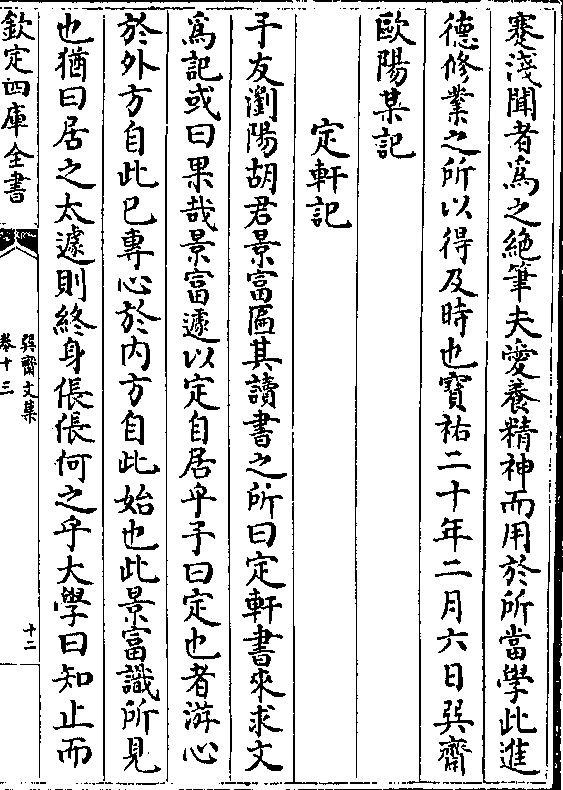 蹇淺聞者爲之絶筆夫愛養精神而用於所當學此進
德修業之所以得及時也寶祐二十年二月六日巽齋
歐陽某記
定軒記
予友瀏陽胡君景富匾其讀書之所曰定軒書來求文
爲記或曰果哉景富遽以定自居乎予曰定也者游心
於外方自此已專心於内方自此始也此景富識所見
也猶曰居之太遽則終身倀倀何之乎大學曰知止而
欽定四庫全書
巽齋文集
卷十三
十二